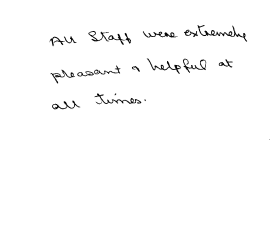 All Staff were extremely
pleasant & helpful at
all times.